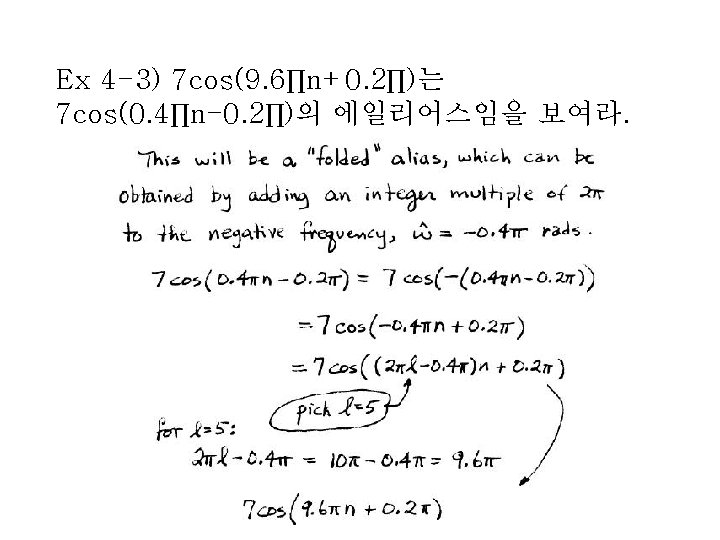 Ex 4-3) 7cos(9.6∏n+0.2∏)는
7cos(0.4∏n-0.2∏)의 에일리어스임을 보여라.
This will be a "folded" alias, which can be
obtained by adding an integer multiple of 2π
to the negative frequency, ω̂ = -0.4π rads.
7cos(0.4πn-0.2π) = 7cos(-(0.4πn-0.2π))
= 7cos(-0.4πn+0.2π)
= 7cos((2πl-0.4π)n+0.2π)
pick l=5
for l=5:
2πl-0.4π = 10π-0.4π = 9.6π
7cos(9.6πn+0.2π)